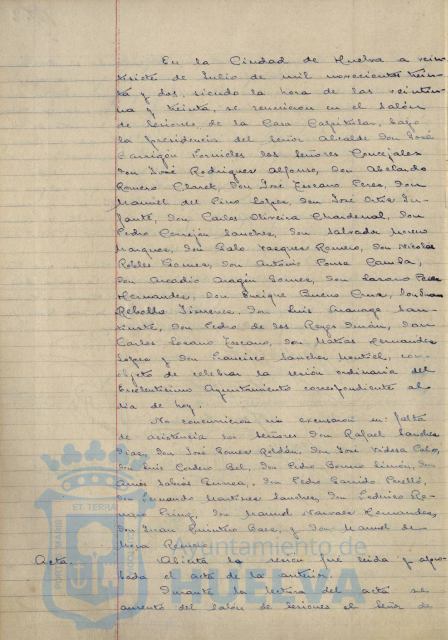 En la Ciudad de Huelva a vein
tisiete de Julio de mil novecientos trein-
ta y dos, siendo la hora de las veintiu-
na y treinta, se reunieron en el salón
de sesiones de la Casa Capitular, bajo
la presidencia del Señor Alcalde don José
Barrigón Fornieles los señores Concejales
don José Rodríguez Alfonso, don Abelardo
Romero Claret, don José Escano Peres, don
Manuel del Pino López, don José Ortiz In-
fante, don Carlos Oliveira Chardenal, don
Pedro Cerrejón Sanches, don Salvador Moreno
Marques, don Pablo Vasques Romero, don Nicolas
Robles Gomes, don Antonio Ponse Camba,
don Arcadio Aragón Gomes, don
Hernandes, don Enrique Bueno Crus, don Juan
Rebollo Jimenes, don Luis
don Pedro de los Reyes don
Carlos Lozano don Matías Hernandes
López y don Francisco Sanches Montiel, con
objeto de celebrar la sesión ordinaria del
Excelentísimo Ayuntamiento correspondiente al
día de hoy.
No concurrieron ni excusaron su falta
de asistencia los señores don Rafael Sanches
Dias, don José Pones Roldán, don José Vidosa Calvo,
don Luis Cordero Bel, don Pedro Borrero Limón, don
Amós Sabrás Gurrea, don Pedro Garrido Perelló,
don Fernando Martines Sanches, don Federico
don Manuel Narvaes Hernandes,
don Juan Quintero Baes, y don Manuel de
Mora Romero.
Acta. Abierta la sesión fué leida y apro-
bada el acta de la anterior.
Durante la lectura del acta se
ausentó del salón de sesiones el señor de
ET TERRA
Ayuntamiento de
HUELVA